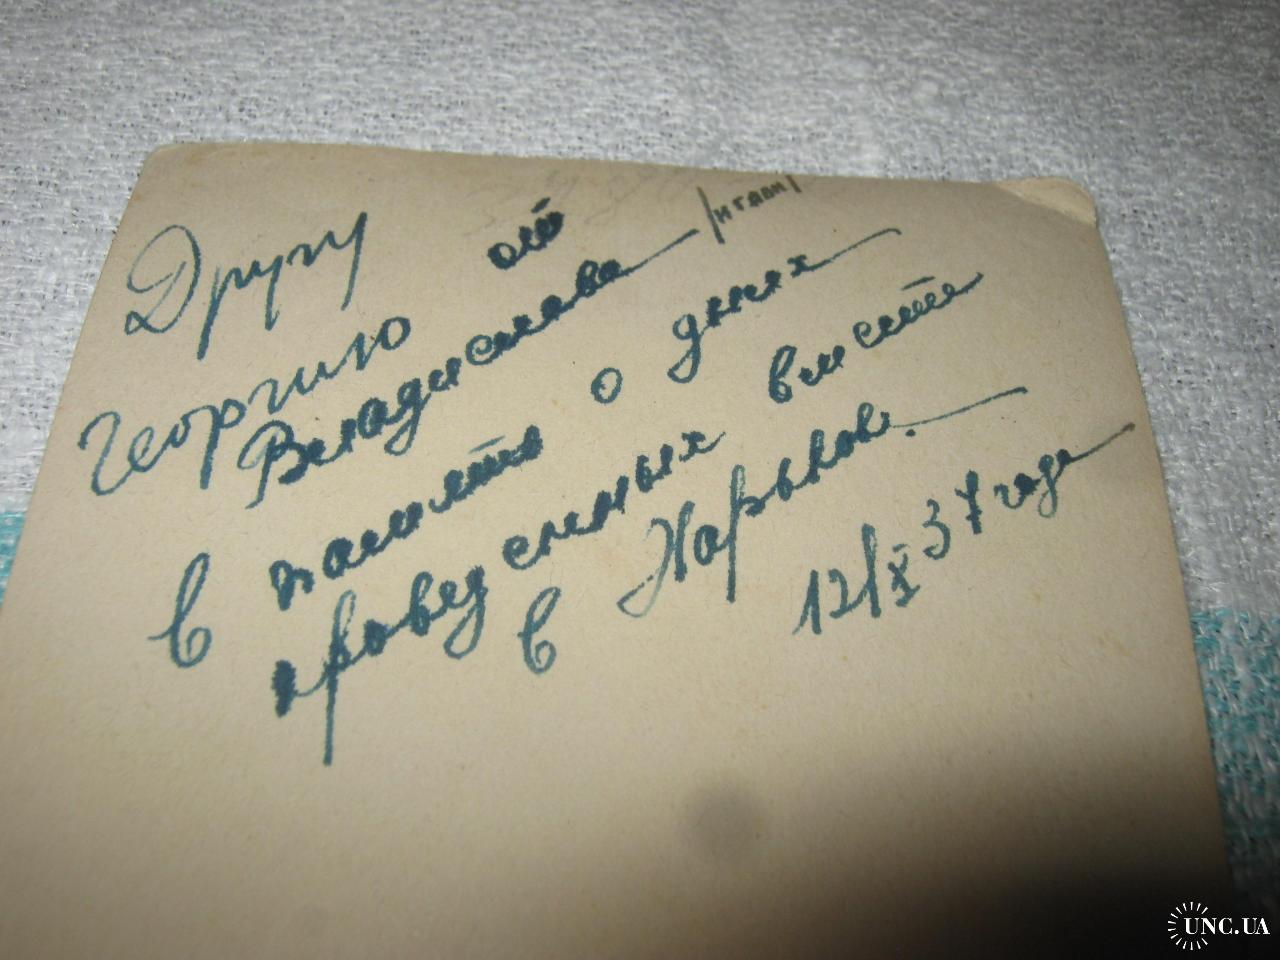 Другу
Георгию от
Владислава
в память о днях
проведенных вместе
в Харькове.
12/X 37 года
UNC.UA